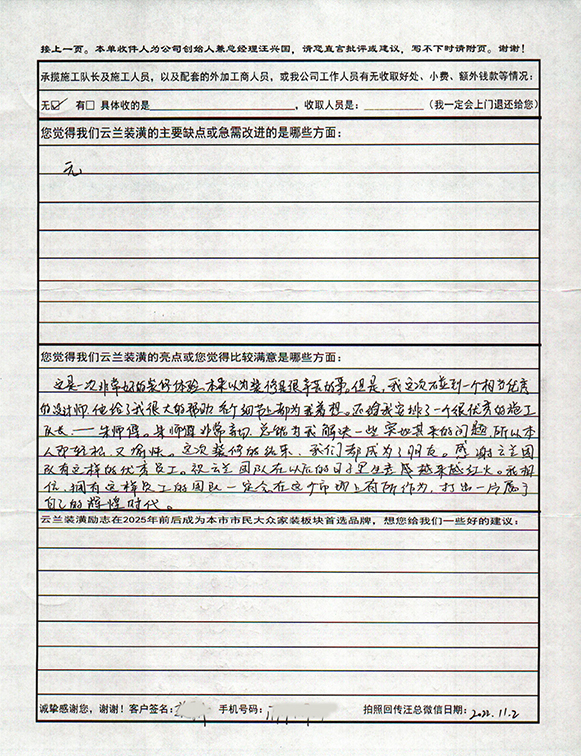 接上一页。本单收件人为公司创始人兼总经理汪兴国，请您直言批评或建议，写不下时请附页。谢谢！
承揽施工队长及施工人员，以及配套的外加工商人员，或我公司工作人员有无收取好处、小费、额外钱款等情况：
无☑ 有□ 具体收的是＿＿＿＿＿＿＿＿，收取人员是：＿＿＿＿＿（我一定会上门退还给您）
您觉得我们云兰装潢的主要缺点或急需改进的是哪些方面：
无
您觉得我们云兰装潢的亮点或您觉得比较满意是哪些方面：
这是一次非常好的装修体验，本来以为装修是很辛苦的事。但是，我这次碰到一个相当优秀
的设计师，他给了我很大的帮助，各个细节上都为我着想。还给我安排了一个很优秀的施工
队长，——朱师傅。朱师傅非常亲切，总能为我解决一些突如其来的问题，所以本
人即轻松，又愉快。这次装修的结束，我们都成为了朋友。感谢云兰团
队有这样的优秀员工。祝云兰团队在以后的日子里生意越来越红火。我相
信，拥有这样员工的团队一定会在这个市场上有所作为，打出一片属于
自己的辉煌时代。
云兰装潢励志在2025年前后成为本市市民大众家装板块首选品牌，想您给我们一些好的建议：
诚挚感谢您，谢谢！客户签名： 手机号码： 拍照回传汪总微信日期：2022.11.2